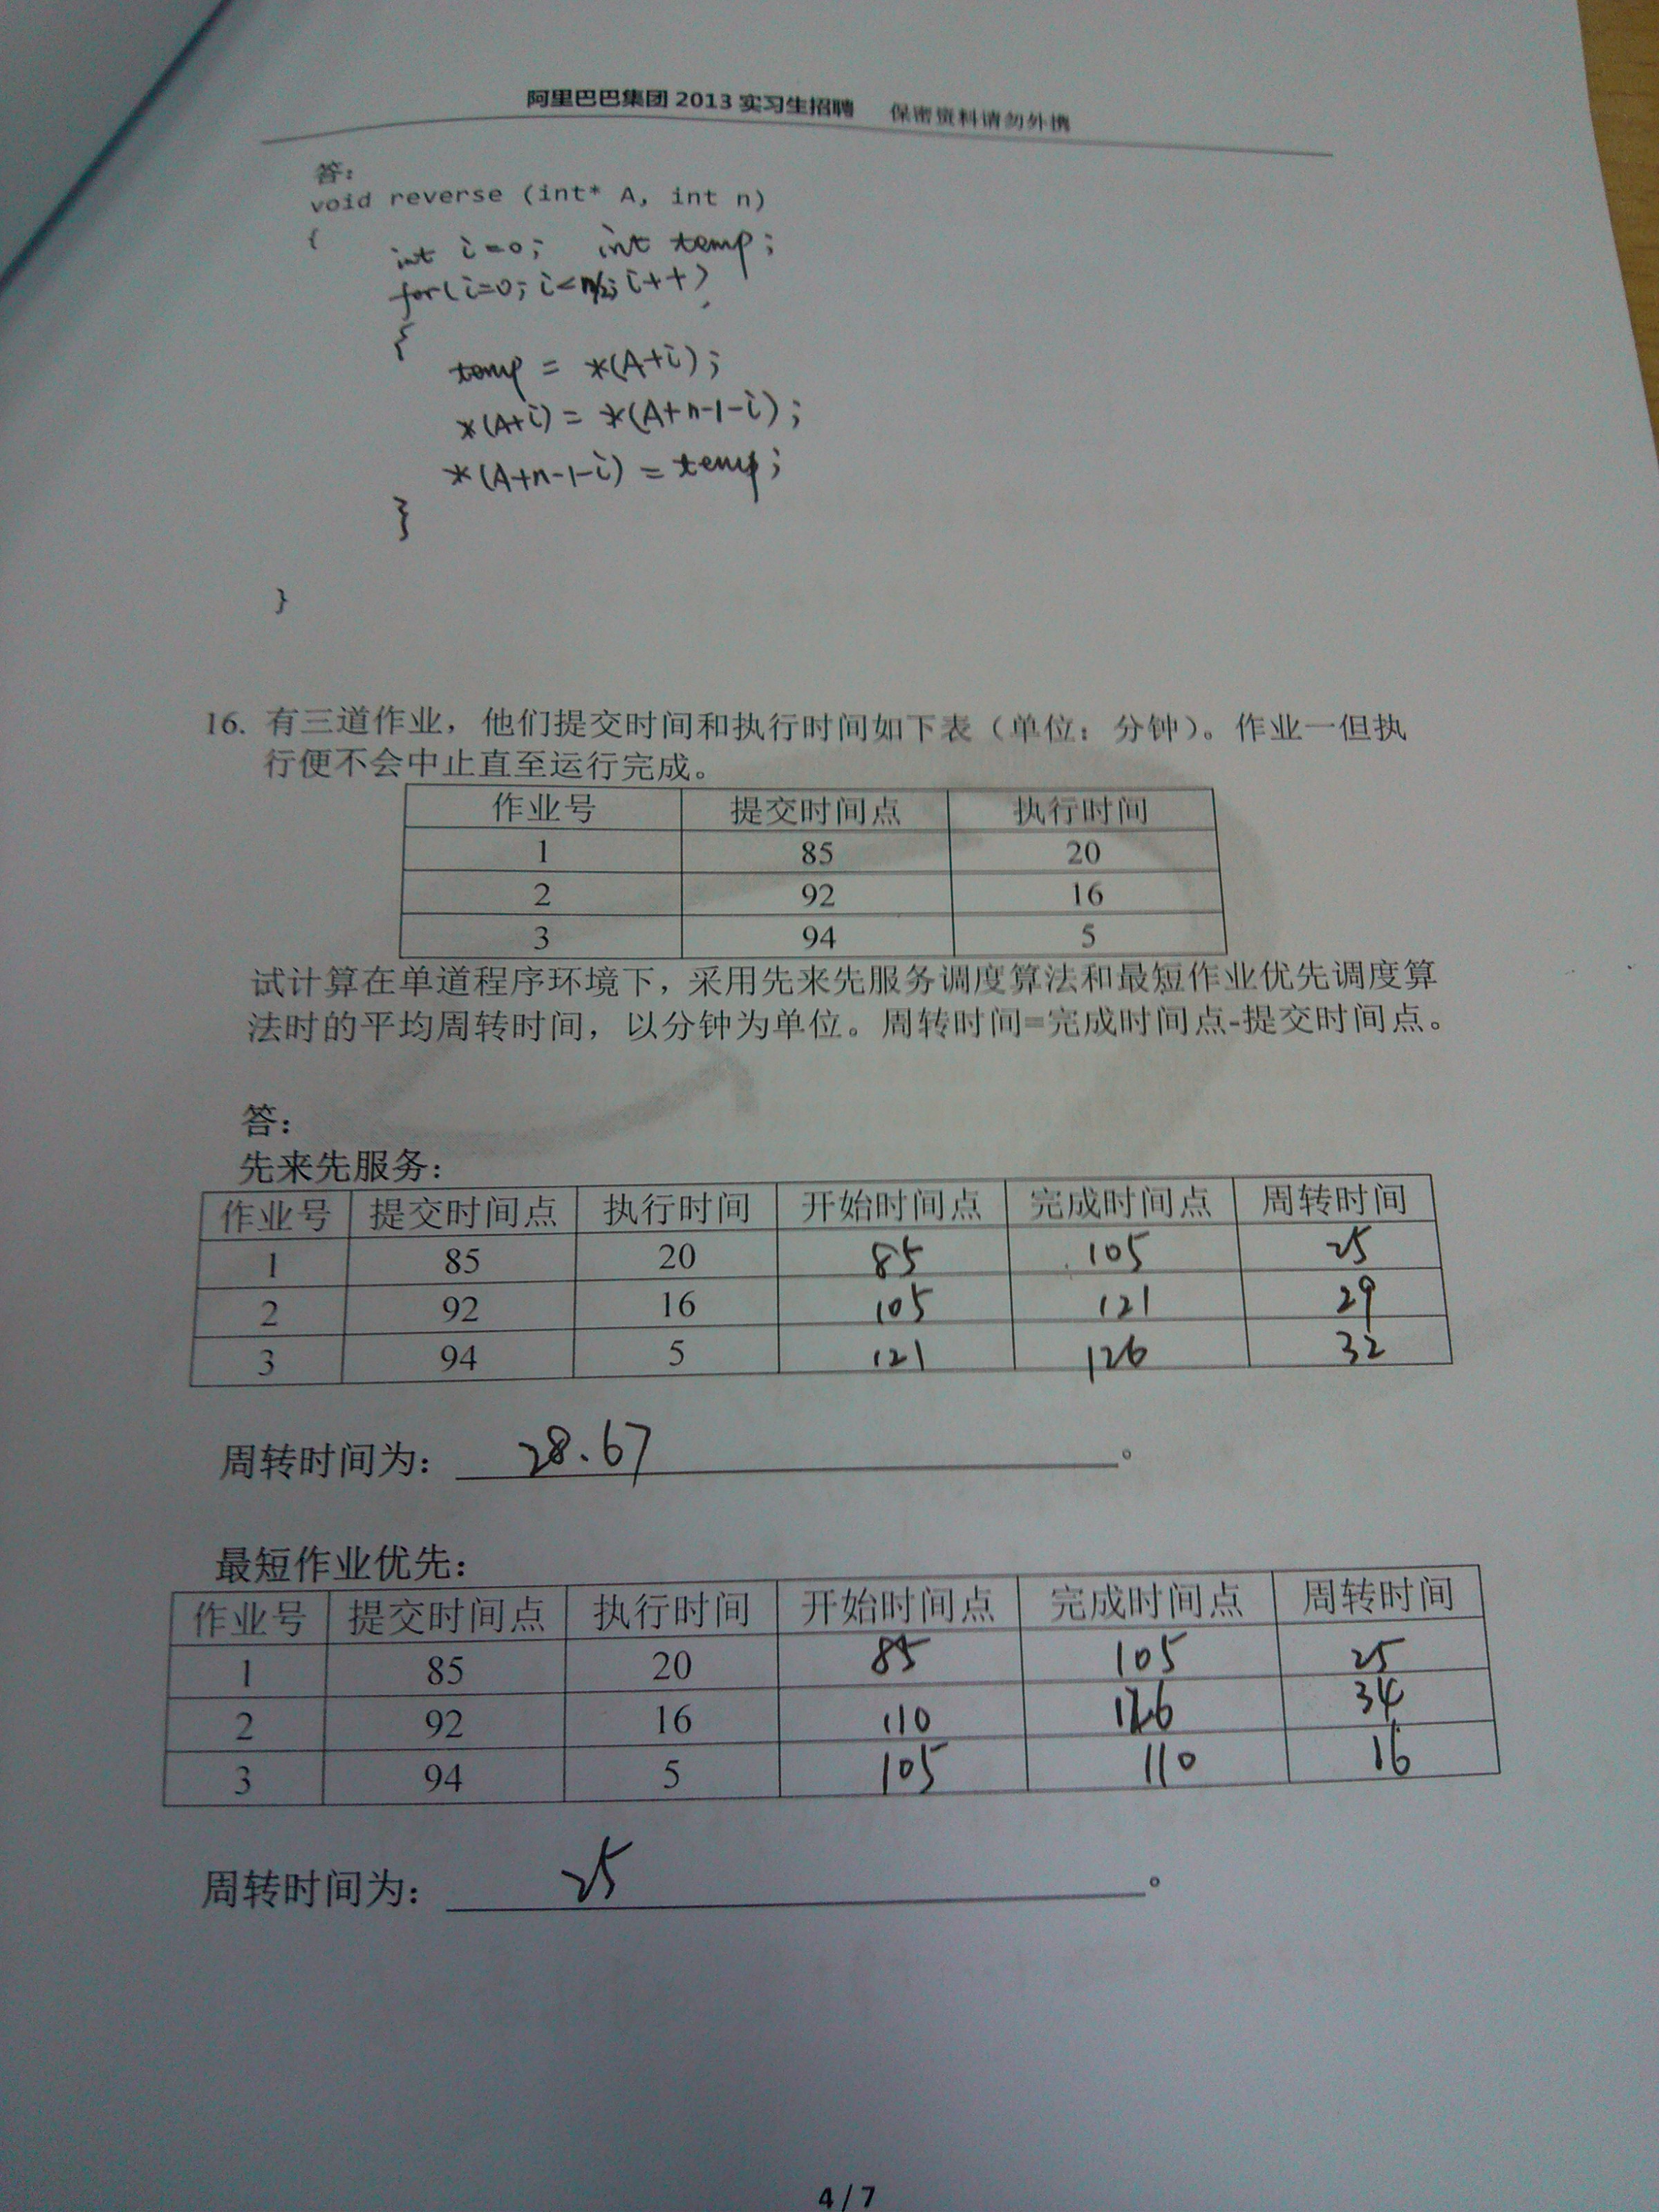 阿里巴巴集团 2013 实习生招聘 保密资料请勿外携
答:
void reverse (int* A, int n)
{
int i=0; int temp;
for(i=0; i<n/2; i++)
{
temp = *(A+i);
*(A+i) = *(A+n-1-i);
*(A+n-1-i) = temp;
}
}
16. 有三道作业，他们提交时间和执行时间如下表（单位：分钟）。作业一但执
行便不会中止直至运行完成。
作业号 提交时间点 执行时间
1 85 20
2 92 16
3 94 5
试计算在单道程序环境下，采用先来先服务调度算法和最短作业优先调度算
法时的平均周转时间，以分钟为单位。周转时间=完成时间点-提交时间点。
答：
先来先服务：
作业号 提交时间点 执行时间 开始时间点 完成时间点 周转时间
1 85 20 85 105 25
2 92 16 105 121 29
3 94 5 121 126 32
周转时间为： 28.67 。
最短作业优先：
作业号 提交时间点 执行时间 开始时间点 完成时间点 周转时间
1 85 20 85 105 25
2 92 16 110 126 34
3 94 5 105 110 16
周转时间为： 25 。
4 / 7